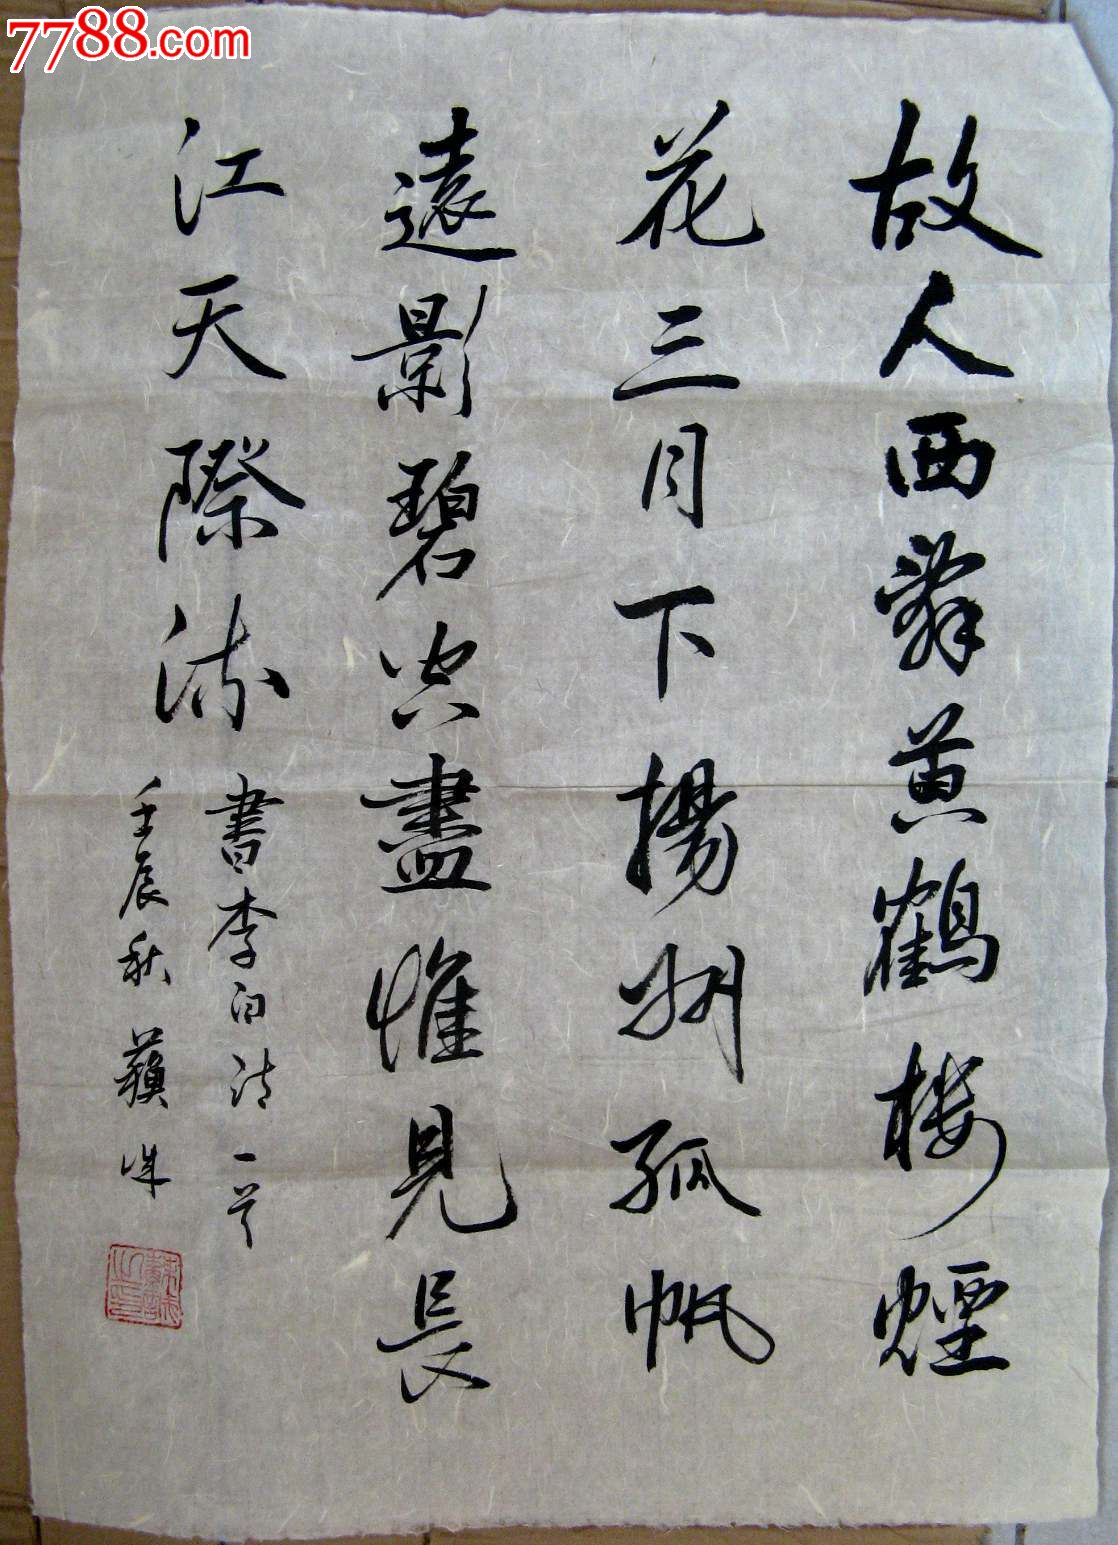 7788.com
故人西辭黄鶴楼煙
花三月下揚州孤帆
遠影碧空盡惟見長
江天際流
書李白诗一首
壬辰秋